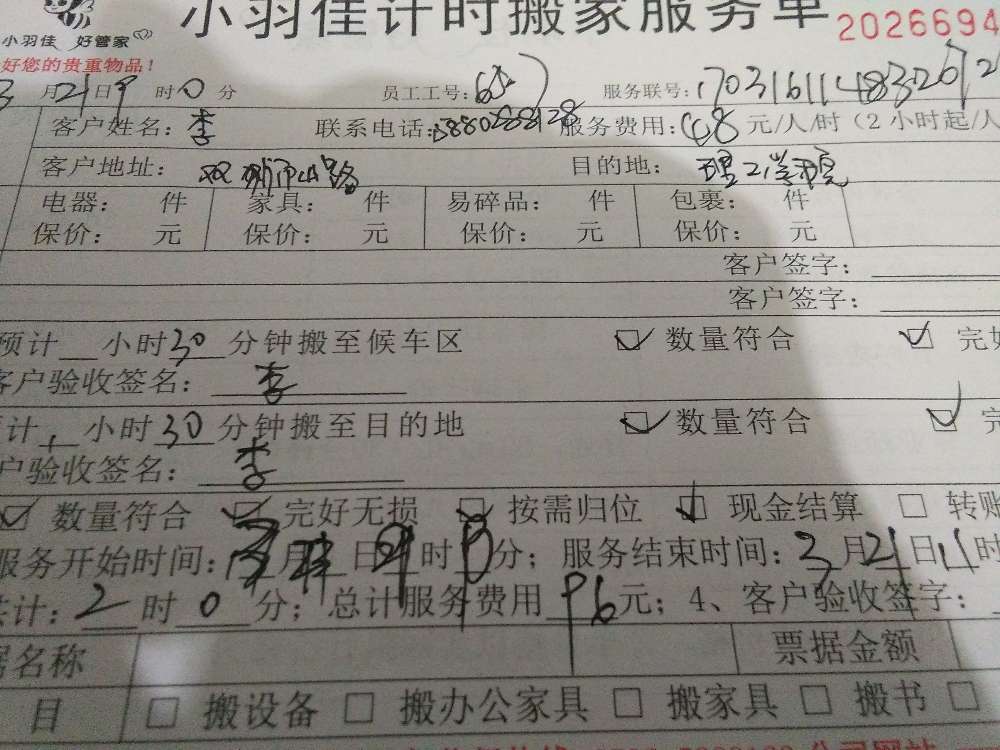 小羽佳计时搬家服务单 2026694
小羽佳 好管家
好您的贵重物品！
3月21日9时0分 员工工号： 服务联号：
客户姓名：李 联系电话： 服务费用：48元/人/时（2小时起/人
客户地址：双狮山路 目的地：理工学院
电器： 件 家具： 件 易碎品： 件 包裹： 件
保价： 元 保价： 元 保价： 元 保价： 元
客户签字：
客户签字：
预计__小时30分钟搬至候车区 ☑数量符合 ☑完好
客户验收签名：李
计1小时30分钟搬至目的地 ☑数量符合 ☑完
户验收签名：李
☑数量符合 ☑完好无损 ☑按需归位 ☑现金结算 □转账
服务开始时间：3月21日9时0分；服务结束时间：3月21日11时
共计：2时0分；总计服务费用96元；4、客户验收签字：
名称 票据金额
目 □搬设备 □搬办公家具 □搬家具 □搬书 □